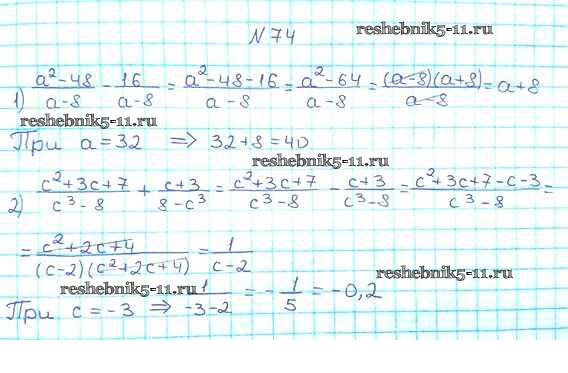 N 74
reshebnik5-11.ru
1) (a² - 48)/(a - 8) - 16/(a - 8) = (a² - 48 - 16)/(a - 8) = (a² - 64)/(a - 8) = ((a - 8)(a + 8))/(a - 8) = a + 8
reshebnik5-11.ru
При a = 32 ⇒ 32 + 8 = 40
reshebnik5-11.ru
2) (c² + 3c + 7)/(c³ - 8) + (c + 3)/(8 - c³) = (c² + 3c + 7)/(c³ - 8) - (c + 3)/(c³ - 8) = (c² + 3c + 7 - c - 3)/(c³ - 8) =
= (c² + 2c + 4)/((c - 2)(c² + 2c + 4)) = 1/(c - 2)
reshebnik5-11.ru
reshebnik5-11.ru
При c = -3 ⇒ 1/(-3 - 2) = -1/5 = -0,2